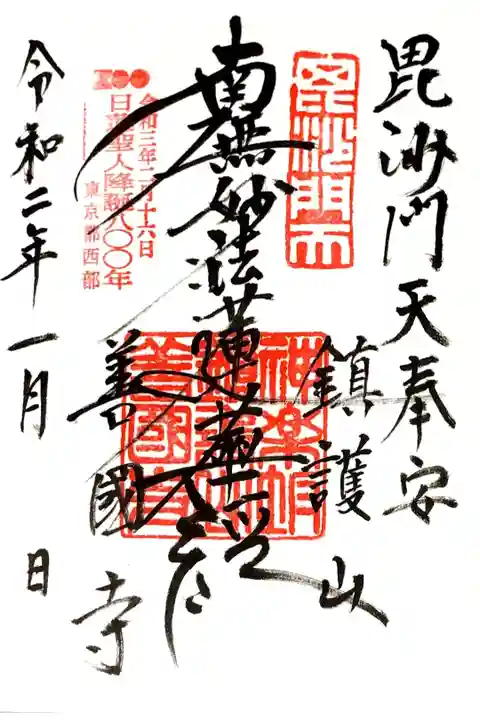 毘沙門天奉安
毘沙門天
鎮護山
南無妙法蓮華経
令和三年二月十六日
日蓮聖人降誕八〇〇年
東京都西部
善國寺
令和二年一月 日